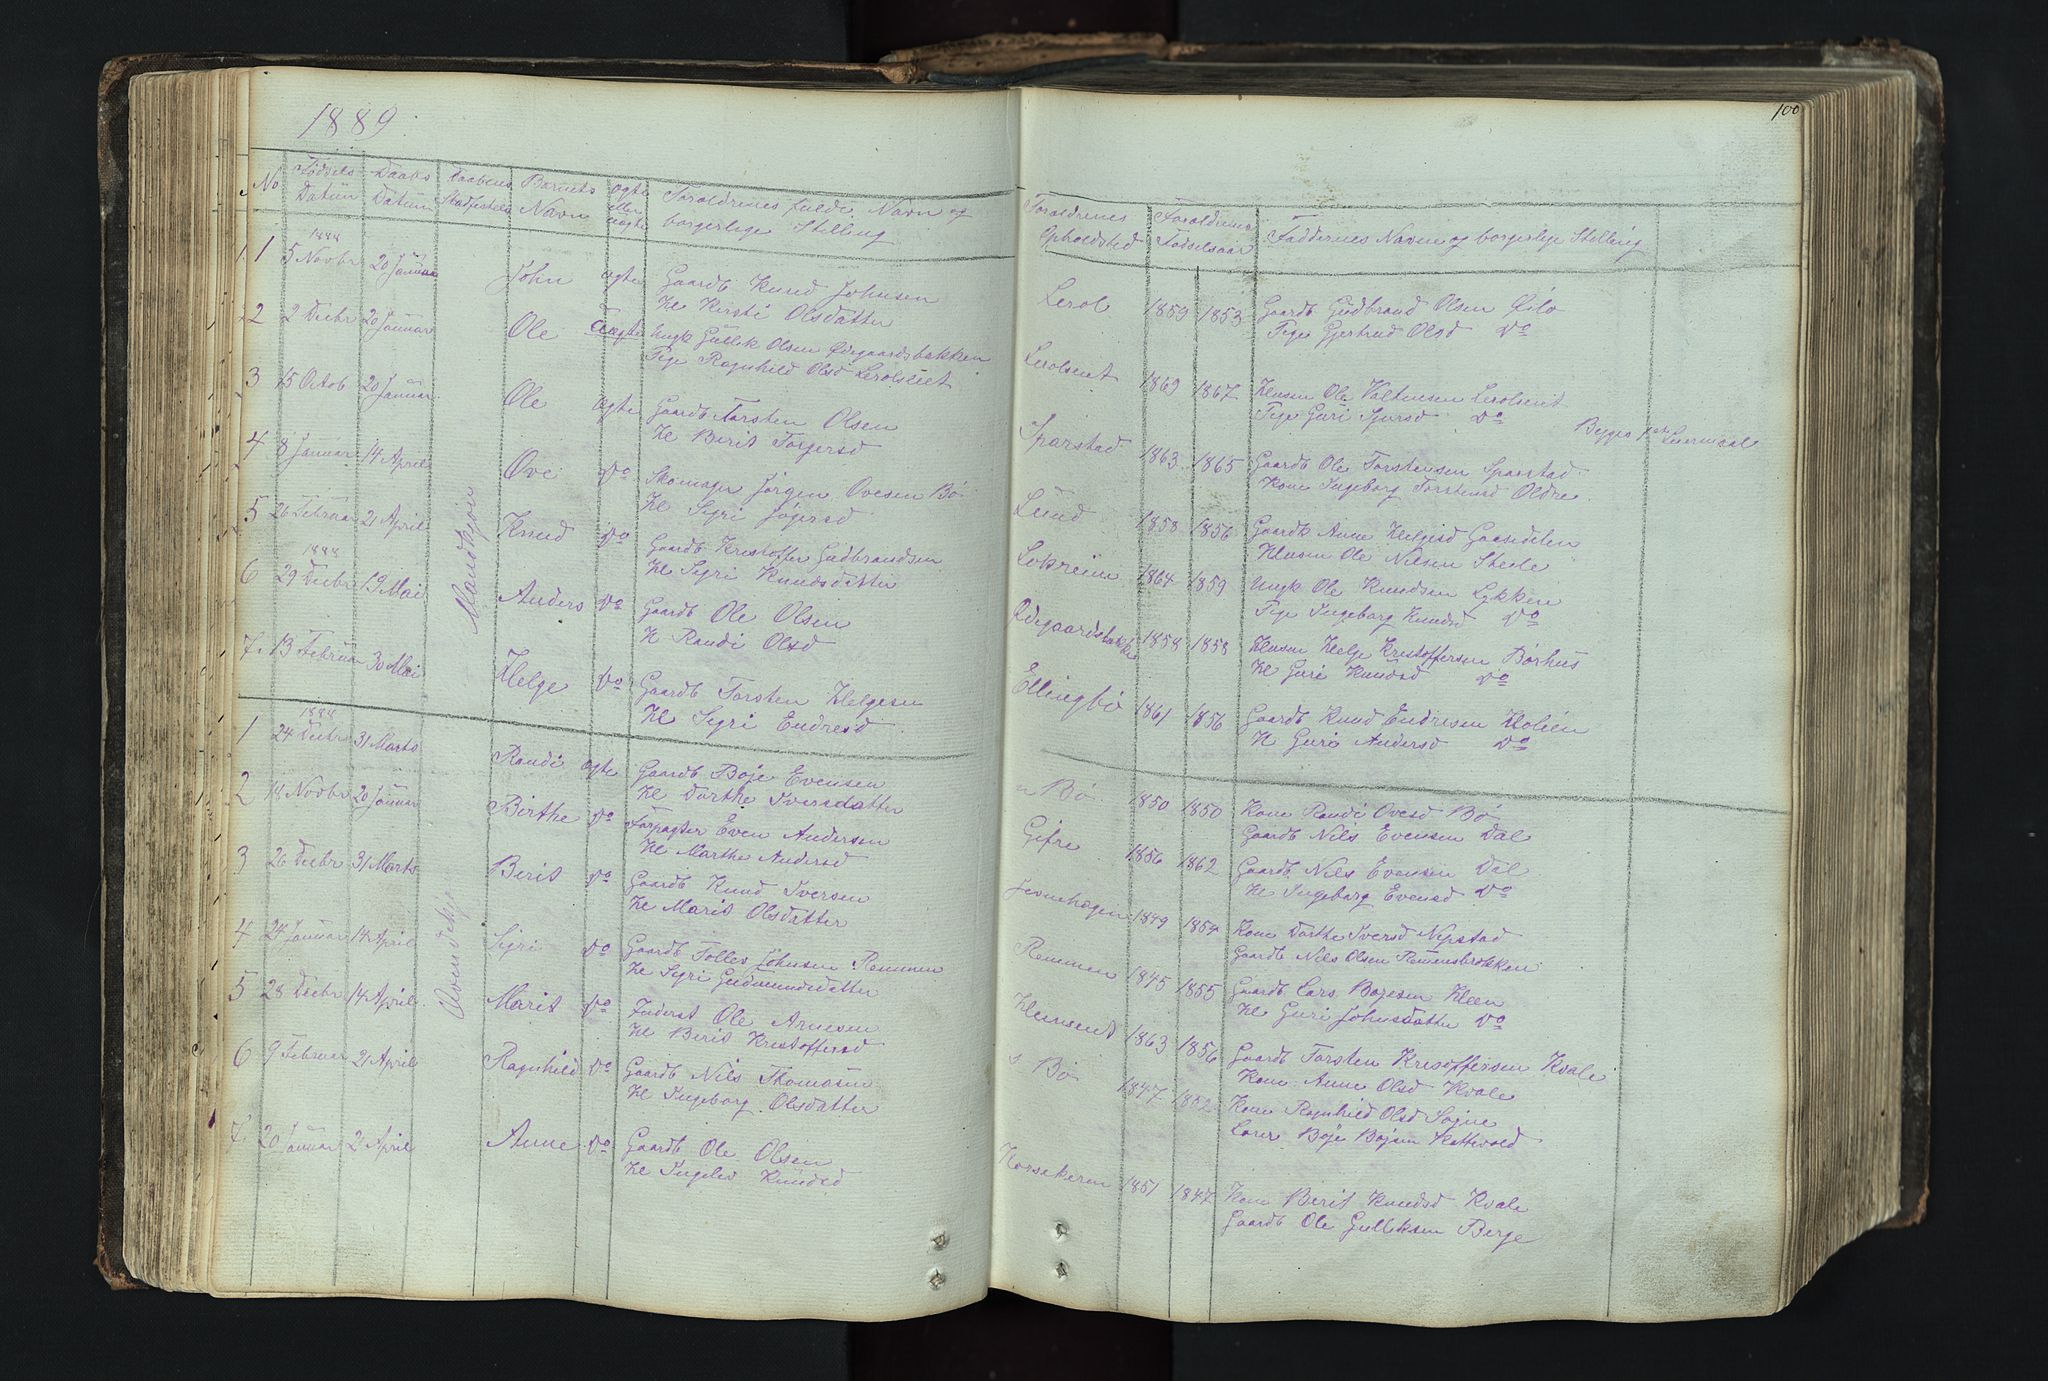 1889
100
No
Fødsels Datum
Daabs Datum
Daabens Stadfestelse
Barnets Navn
ægte eller uægte
Foreldrenes fulde Navn og borgerlige Stilling
Foreldrenes Opholdsted
Foreldrenes Fødselsaar
Faddernes Navne og borgerlige Stilling
Mandkjøn
1 1888 5 Novbr 20 Januar John ægte Gaardb Knud Johnsen Lerol 1859 1853 Gaardb Gudbrand Olsen Øilo
He Kirsti Olsdatter Pige Gjertrud Olsd do
2 2 Decbr 20 Januar Ole Uægte Ungk Gullik Olsen Ødegaardsbakken Lerolseiet 1869 1867 Husm Ole Lerolseiet
Pige Ragnhild Olsd Lerolseiet Pige Guri Sjursd do Begges 1ste Leiermaal
3 15 Octob 20 Januar Ole ægte Gaardb Torsten Olsen Sparstad 1863 1865 Gaardb Ole Torstensen Sparstad
He Berit Torgersd Kone Ingeborg Torstensd Oldre
4 8 Januar 14 April Ove do Skomager Jørgen Ovesen Bø Lund 1858 1856 Gaardk Anne Helgesd
He Sigri Husm Ole Nilsen Steile
5 26 Februar 21 April Knud do Gaardb Kristoffer Gudbrandsen Lokreim 1864 1859 Ungk Ole Knudsen Lykken
He Sigri Knudsdatter Pige Ingeborg Knudsd do
6 1888 29 Decbr 19 Mai Anders do Gaardb Ole Olsen Ødegaardsbakke 1858 1858 Husm Helge Kristoffersen Børhus
H Randi Olsd He Guri Knudsd do
7. 13 Februar 30 Mai Helge do Gaardb Torsten Helgesen Ellingbø 1861 1856 Gaardb Knud Endresen Holien
He Sigri Endresd H Guri Andersd do
Qvindekjøn
1 1888 24 Decbr 31 Marts Randi ægte Gaardb Boje Evensen n Bø 1850 1850 Kone Randi Ovesd Bø
He Dorthe Iversdatter Gaardb Nils Evensen Dal
2 18 Novbr 20 Januar Birthe do Forpagter Even Andersen Gifre 1856 1862 Gaardb Nils Evensen Dal
He Marthe Andersd He Ingeborg Evensd do
3 26 Decbr 31 Marts Berit do Gaardb Knud Iversen Jevnehagen 1849 1854 Kone Dorthe Iversd Nystad
He Marit Olsdatter Gaardb Nils Olsen Remmesbrokken
4 24 Januar 14 April Sigri do Gaardb Tollev Johnsen Remmen Remmen 1845 1855 Gaardb Lars Bojesen Kleen
He Sigri Gudmundsdatter He Guri Johnsdatter do
5 28 Decbr 14 April Marit do Inderst Ole Arnesen 1863 1856 Gaardb Torsten Kristoffersen Kvale
He Berit Kristoffersd Kone Anne Olsd Kvale
6 9 Februar 21 April Ragnhild do Gaardb Nils Thomasen s Bø 1847 1852 Kone Ragnhild Olsd Søgne
He Ingeborg Olsdatter Lærer Boje Bojsen Kattevold
7. 20 Januar 21 April Anne do Gaardb Ole Olsen 1851 1847 Kone Berit Knudsd Kvale
He Ingelev Knudsd Gaardb Ole Gulliksen Berge